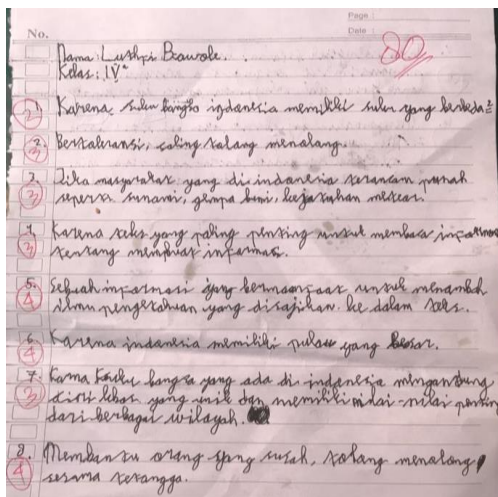 Page :
No.
Date :
80
Nama: Luthpi Beawole.
Kelas: IV
1. Karena, suku bangsa indonesia memiliki suku yang berbeda²
2
2. Bertaleransi, saling tolong menolong.
3
3. Jika masyarakat yang di indonesia terancam punah
3
seperti sunami, gempa bumi, kejatuhan meteor.
4. Karena teks yang paling penting untuk membaca informasi
3
tentang membuat informasi.
5. Sebuah informasi yang bermanfaat untuk menambah
4
ilmu pengetahuan yang disajikan ke dalam teks.
6. Karena indonesia memiliki pulau yang besar.
4
7. Karna suku bangsa yang ada di indonesia mengandung
3
ciri khas yang unik dan memiliki nilai-nilai penting
dari berbagai wilayah.
8. Membantu orang yang susah, tolong menolong
4
sesama tetangga.